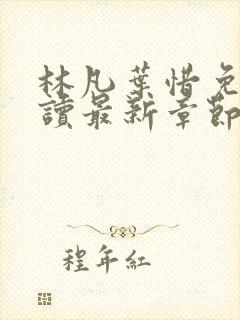 林凡葉惜免
讀最新章節
程年紅